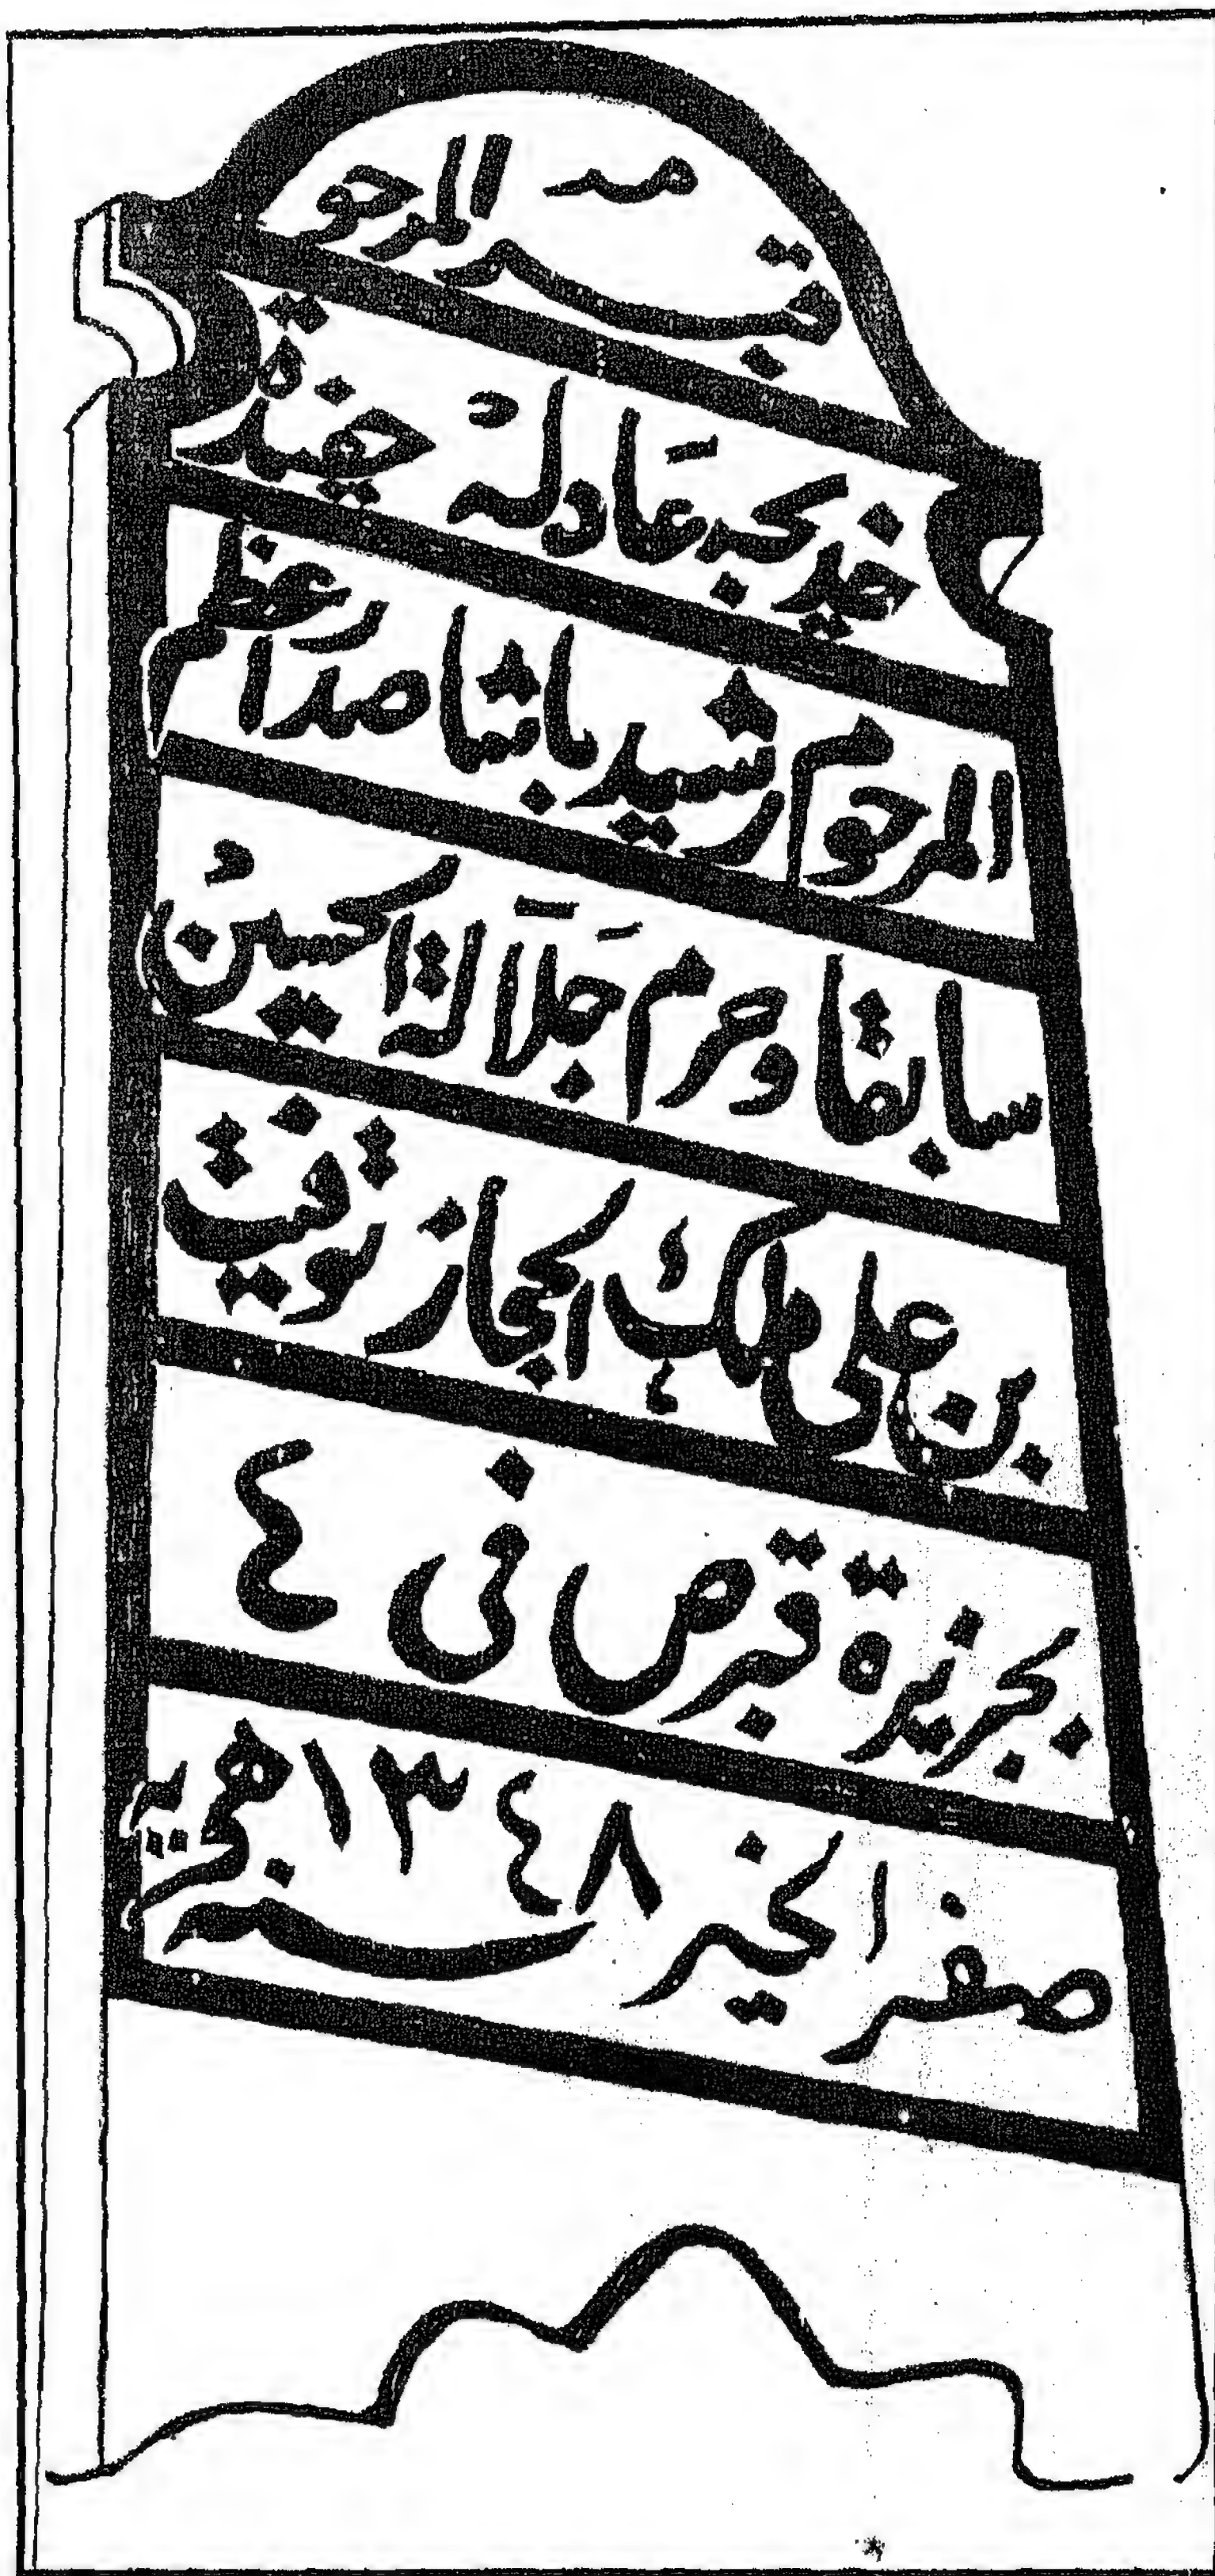 قبر المرحومه
خديجه عادله حفيدة
المرحوم رشيد باشا صدر اعظم
سابقا وحرم جلالة الحسين
بن علي ملك الحجاز توفيت
بجزيرة قبرص في ٤
صفر الخير ١٣٤٨ سنه هجريه